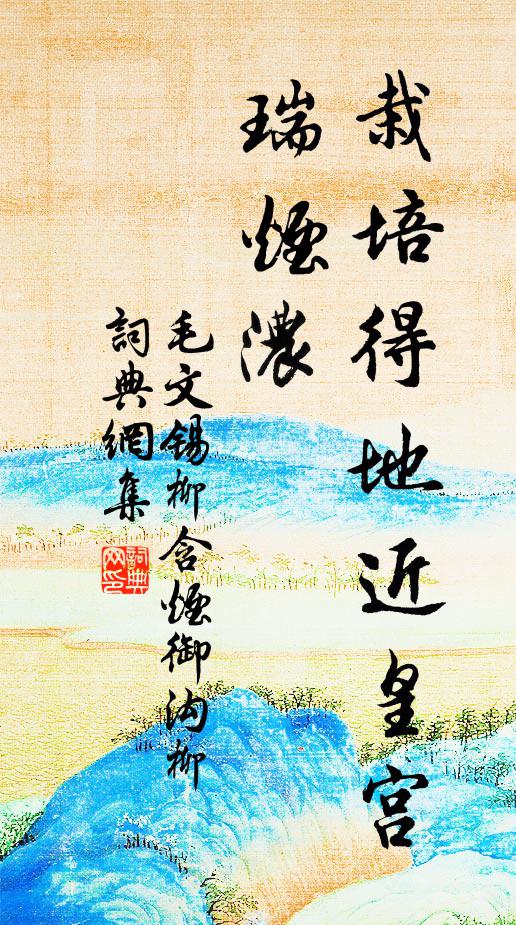 栽培得地近皇宫
瑞煙濃
毛文锡柳含煙御沟柳
詞典網集
詞典网印